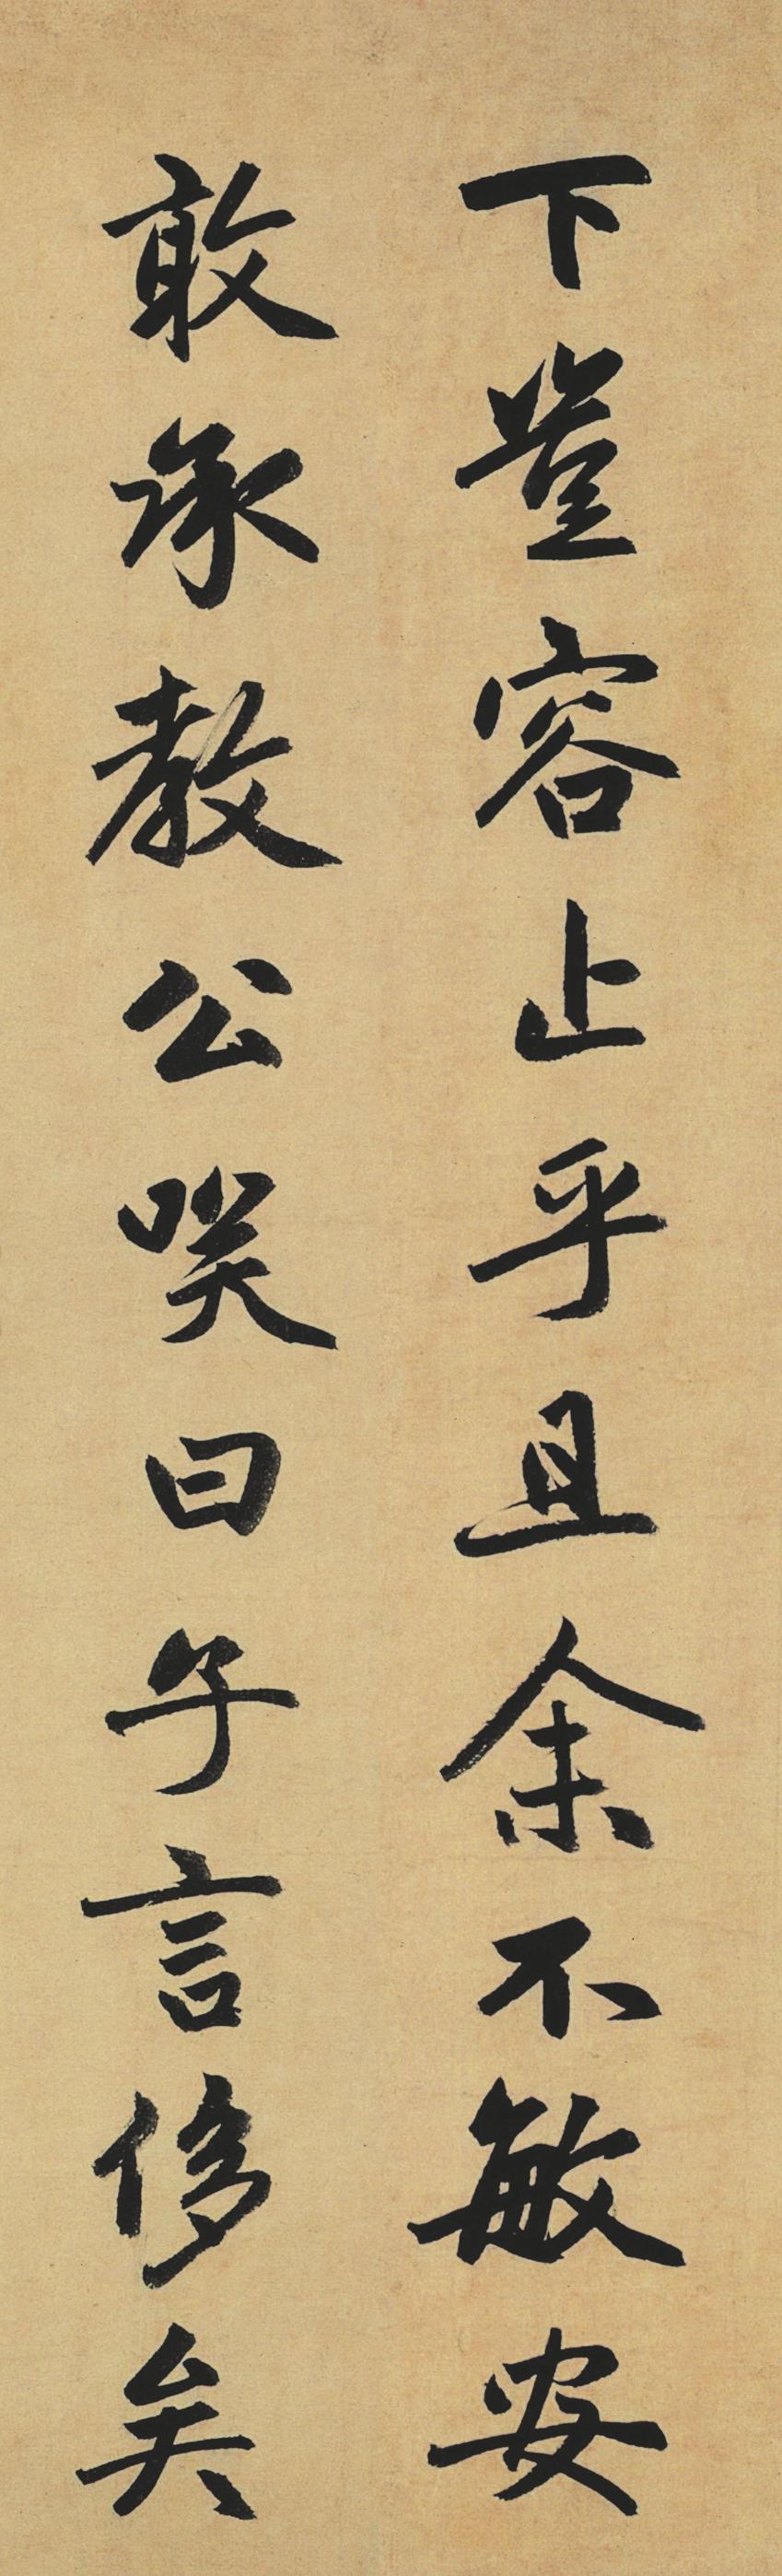 下豈容止乎且余不敏安
敢承教公笑曰子言侈矣